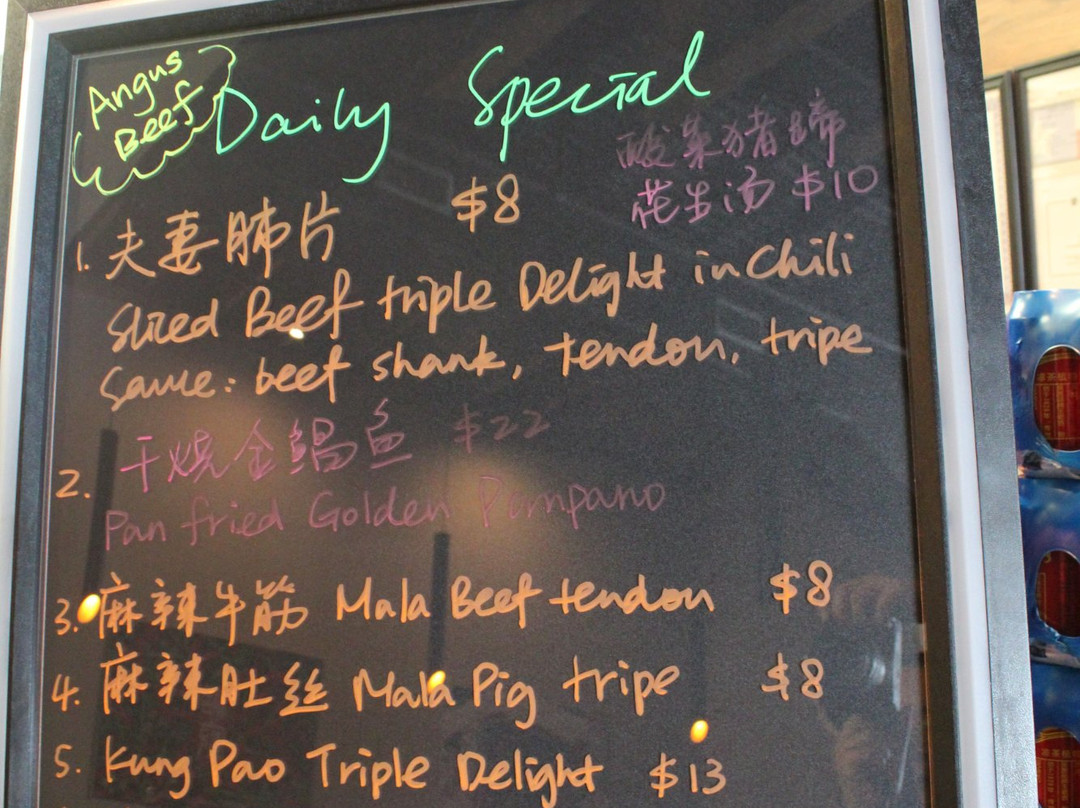 Angus
Beef
Daily Special
酸菜猪蹄
花生汤 $10
1. 夫妻肺片 $8
Sliced Beef triple Delight in Chili
Sauce: beef shank, tendon, tripe
2. 干烧金鲳鱼 $22
Pan fried Golden Pompano
3. 麻辣牛筋 Mala Beef tendon $8
4. 麻辣肚丝 Mala Pig tripe $8
5. Kung Pao Triple Delight $13